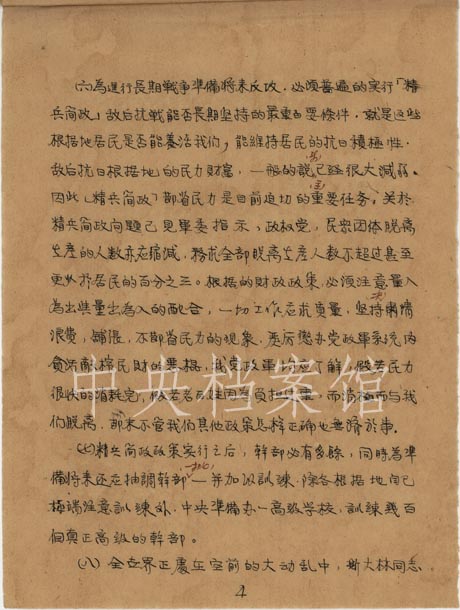 (六)為進行長期戰爭準備將來反攻,必須普遍的实行「精
兵简政」敌后抗战能否長期坚持的最重要條件,就是这些
根据地居民是否能养活我们,能維持居民的抗日積極性.
敌后抗日根据地的民力财富,一般的說已經很大減弱.
因此「精兵简政」節省民力是目前迫切的重要任务,关於
精兵简政问題已見軍委指示,政权党,民衆团体脱離
生產的人数亦应缩减,務求全部脱離生產人数不超过甚至
更少於居民的百分之三。根据的财政政策,必須注意量入
為出與量出為入的配合,一切工作应求质量,坚持肅清
浪费,鋪張,不節省民力的現象,
貪污
我党政軍均应了解,假若民力
很快的消耗完,假若老百姓因為負担过重,而消極而与我
们脱離,那末不管我们其他政策怎樣正确也無濟於事.
(七)精兵简政政策实行之后,幹部必有多餘,同時為準
備將来还应抽調幹部一并加以訓練.除各根据地自己
極端注意訓練外.中央準备办一高級学校,訓練幾百
個真正高級的幹部。
(八)全世界正處在空前的大动乱中,斯大林同志
4
中央档案馆